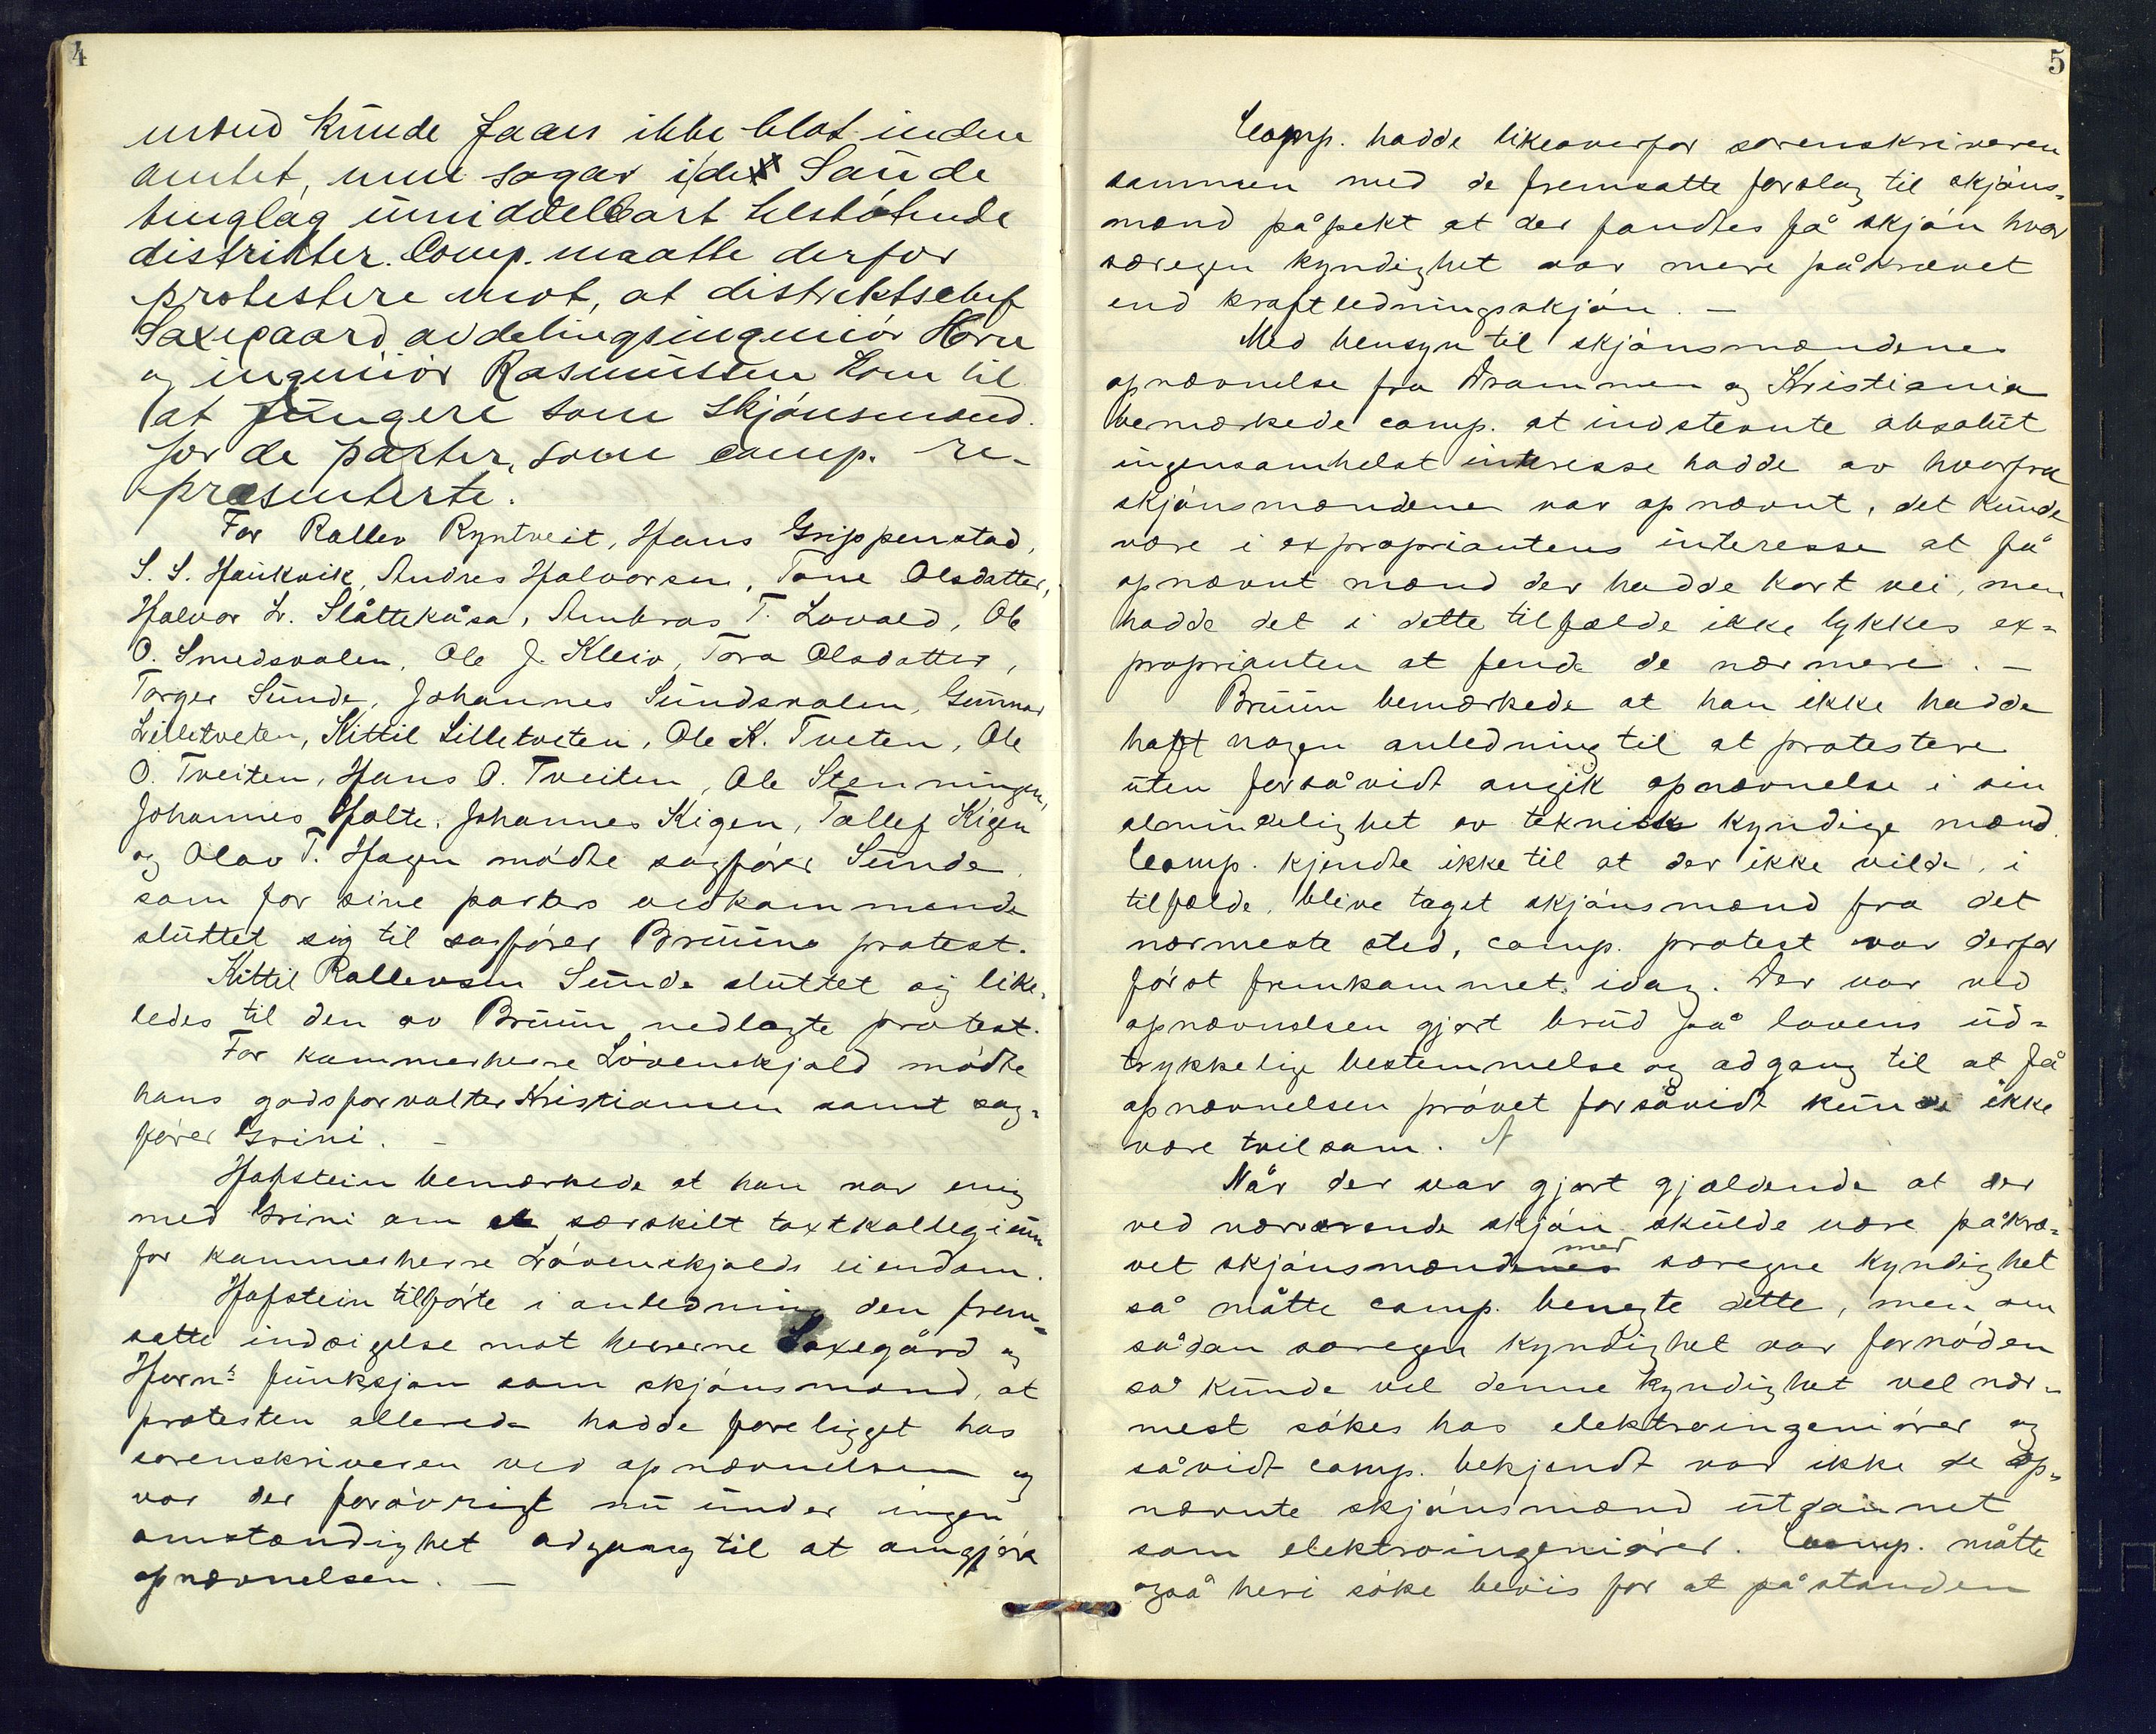 4
mænd kunde faaes ikke blot inden
amtet, men sogar i de Saude
tinglag umiddelbart tilstötende
distrikter. Comp. maatte derfor
protestere mot, at distriktschef
Saxegaard avdelingsingeniör Horn
og ingeniör Rasmussen kom til
at fungere som skjönsmænd
for de parter, som comp. re-
præsenterte.
For Rollev Ryntveit, Hans Grippenstad,
S. S. Haukvik, Andres Halvorsen, Tone Olsdatter,
Halvor L. Slåttekåsa, Ambros T. Lovald, Ole
O. Smedsvalen, Ole J. Kleiv, Tora Olsdatter,
Torger Sunde, Johannes Sundsvalen, Gunnar
Lilletveten, Kittil Lilletveten, Ole K. Tveten, Ole
O. Tveiten, Hans O. Tveiten, Ole Stenningen,
Johannes Holte, Johannes Kigen, Tallef Kigen
og Olav T. Hagen mödte sagförer Sunde,
som for sine parters vedkommende
sluttet sig til sagförer Bruuns protest.
Kittil Rollevsen Sunde sluttet sig like-
ledes til den av Bruun nedlagte protest.
For kammerherre Lövenskjold mödte
hans godsforvalter Kristiansen samt sag-
förer Grini. –
Hafstein bemærkede at han var enig
med Grini om særskilt taxtkollegium
for kammerherre Lövenskjolds eiendom.
Hafstein tilförte i anledning den frem-
satte indsigelse mot herrerne Saxegård og
Horns funksjon som skjönsmænd, at
protesten allerede hadde foreligget hos
sorenskriveren ved opnævnelsen og
var der forövrigt nu under ingen
omstændighet adgang til at omgjöre
opnævnelsen. –
5
Comp. hadde likeoverfor sorenskriveren
sammen med de fremsatte forslag til skjöns-
mænd påpekt at der fandtes få skjön hvor
særegen kyndighet var mere påkrævet
end kraftledningsskjön. –
Med hensyn til skjönsmændenes
opnævnelse fra Drammen og Kristiania
bemærkede comp. at indstevnte absolut
ingensomhelst interesse hadde av hvorfra
skjönsmændene var opnævnt, det kunde
være i expropriantens interesse at få
opnævnt mænd der hadde kort vei, men
hadde det i dette tilfælde ikke lykkes ex-
proprianten at finde de nærmere. –
Bruun bemærkede at han ikke hadde
haft nogen anledning til at protestere
uten forsåvidt angik opnævnelse i sin
almindelighet av teknisk kyndige mænd.
Comp. kjendte ikke til at der ikke vilde, i
tilfælde, blive taget skjönsmænd fra det
nærmeste sted, comp. protest var derfor
först fremkommet idag. Der var ved
opnævnelsen gjort brud på lovens ud-
trykkelige bestemmelse og adgang til at få
opnævnelsen prövet forsåvidt kunde ikke
være tvilsom.
Når der var gjort gjældende at der
ved nærværende skjön skulde være påkræ-
vet skjönsmænd med særegne kyndighet
så måtte comp. benegte dette, men om
sådan særegen kyndighet var fornöden
så kunde vel denne kyndighet vel nær-
mest sökes hos elektroingeniörer og
såvidt comp. bekjendt var ikke de op-
nævnte skjönsmænd utdannet
som elektroingeniörer. Comp. måtte
også heri söke bevis for at påstanden